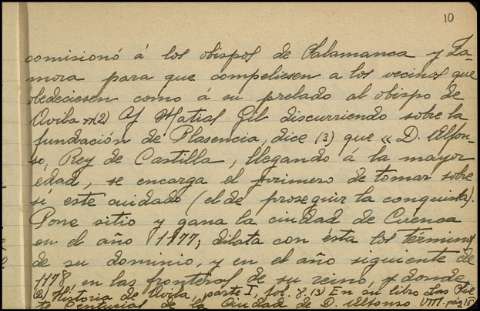 10
comisionó á los obispos de Salamanca y Za-
mora para que compeliesen a los vecinos que
obedeciesen como á su prelado al obispo de
Avila (2) Y Matías Gil discurriendo sobre la
fundación de Plasencia, dice (3) que «D. Alfon-
so, Rey de Castilla, llegando á la mayor
edad, se encarga el primero de tomar sobre
sí este cuidado (el de proseguir la conquista).
Pone sitio y gana la ciudad de Cuenca
en el año 1177; dilata con ésta los términos
de su dominio, y en el año siguiente de
1178 en las fronteras de su reino, y donde
(2) Historia de Avila, parte I, fol. (3) En su libro Las Sie-
te Centurias de la Ciudad de D. Alfonso VIII. pág